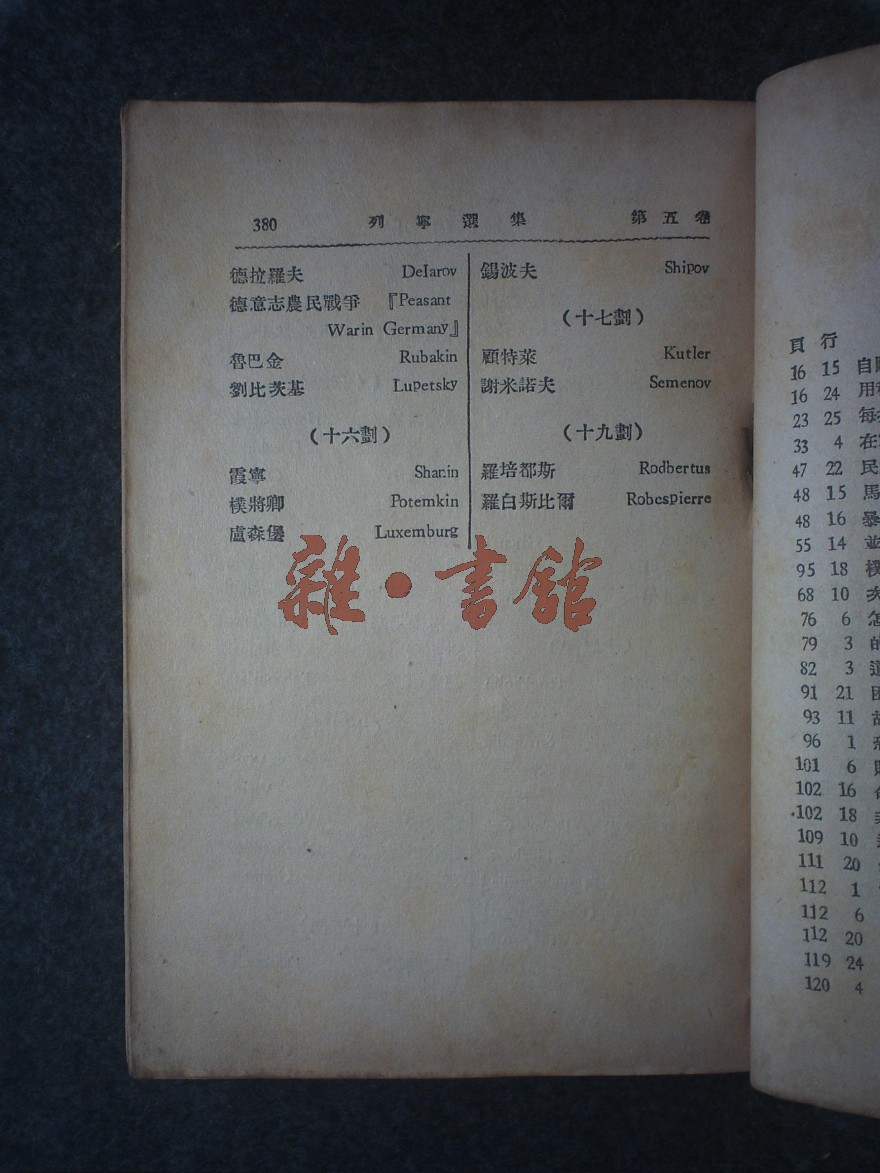 380 列寧選集 第五卷
德拉羅夫 Delarov
德意志農民戰爭 『Peasant
Warin Germany』
魯巴金 Rubakin
劉比茨基 Lupetsky
（十六劃）
霞寧 Shanin
樸將卿 Potemkin
盧森堡 Luxemburg
錫波夫 Shipov
（十七劃）
顧特萊 Kutler
謝米諾夫 Semenov
（十九劃）
羅培都斯 Rodbertus
羅白斯比爾 Robespierre
雜・書館
頁 行
16 15 自
16 24 用
23 25 每
33 4 在
47 22 民
48 15 馬
48 16 暴
55 14 並
95 18 樸
68 10 次
76 6 怎
79 3 的
82 3 這
91 21 因
93 11 故
96 1
101 6
102 16
102 18
109 10
111 20
112 1
112 6
112 20
119 24
120 4